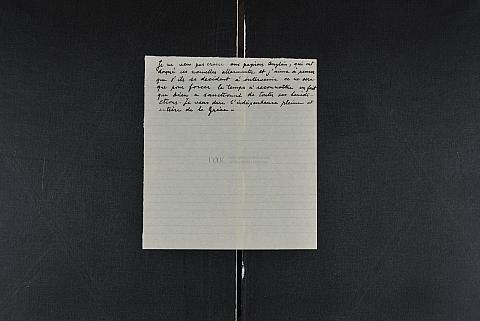 Je ne veux pas croire aux papiers Anglais, qui ont
donné ces nouvelles allarmantes et j'aime à penser
que s'ils se décident à intervenir ce ne sera
que pour forcer le temps à reconnaître un fait
que Dieu a sanctionné de toutes ses bénédi-
ctions. Je veux dire l'indépendance pleine et
entière de la Grèce.